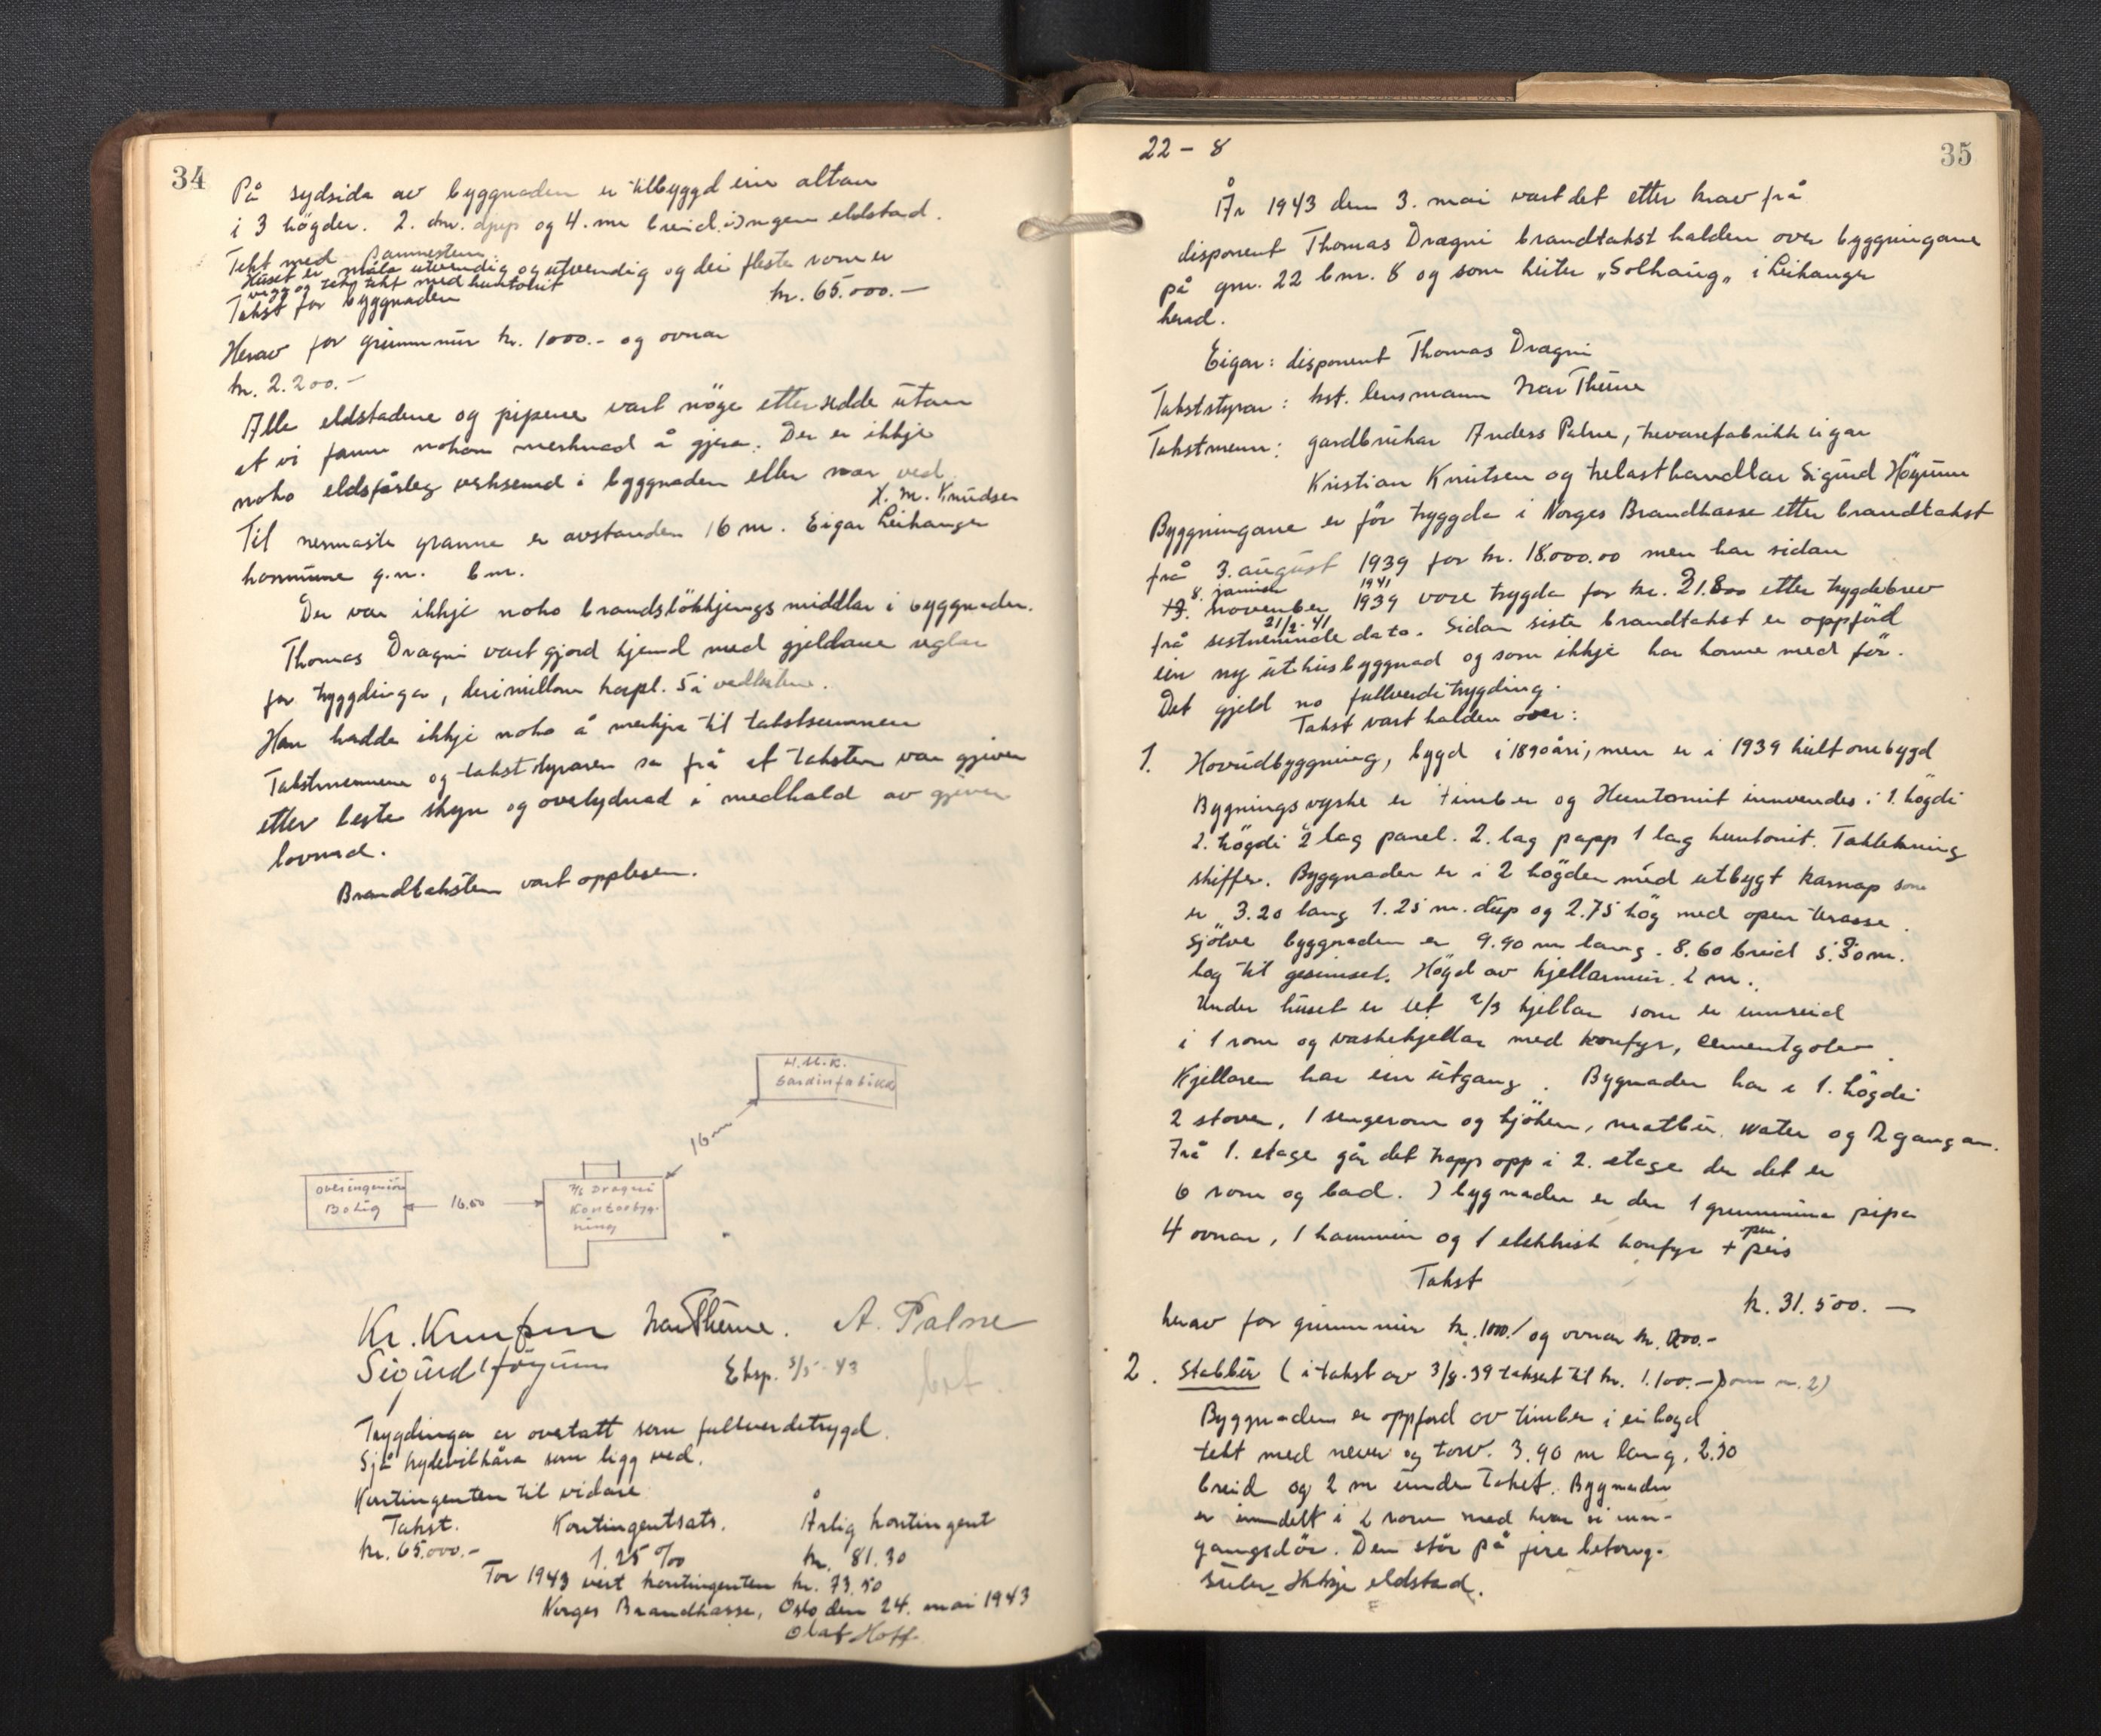 34
På sydsida av byggnaden er tilbyggd ein altan
i 3 högder. 2. m. djup og 4. m breid. Ingen eldstad.
Tekt med
Huset er måla utvendig og utvendig og dei fleste rom er
vegg og tak tekt med huntonit
Takst for byggnaden kr. 65.000.-
Herav for grunnmur kr. 1000.- og ovnar
kr. 2.200.-
Alle eldstadene og pipene vart nöge ettersedde utan
at vi fann nokon merknad å gjera. Der er ikkje
noko eldsfårleg verksemd i byggnaden eller nær ved.
H. M. Knudsen
Til nermaste granne er avstanden 16 m. Eigar Leikanger
kommune g.n. b.nr.
Der var ikkje noko brandslökkjings middlar i byggnaden.
Thomas Dragni vart gjord kjend med gjeldane reglar
for trygdinga, derimillom kapl. 5 i vedtektene.
Han hadde ikkje noko å merkja til takstsummen
Takstmennene og takststyraren sa frå at taksten var gjeven
etter beste skyn og overtydnad i medhald av gjeven
lovnad.
Brandtaksten vart opplesen.
H.M.K.
Gardinfabrikk
16 m
Overingeniör
Bolig
16.00
A/S Dragni
Kontorbyg-
ning
Kr. Knutsen Ivar Thune. A. Palne
Sigurd Högum Eksp. 3/5-43
Trygdinga er overtatt som fullverdetrygd.
Sjå trydevilkåra som ligg ved.
Kontingenten til vidare
Takst. Kontingentsats. Årlig kontingent
kr. 65.000.- 1.25 ‰ kr. 81.30
For 1943 vert kontingenten kr. 73.50
Norges Brandkasse, Oslo den 24. mai 1943
Olaf Hoff
22 - 8
35
År 1943 den 3. mai vart det etter krav frå
disponent Thomas Dragni brandtakst halden over byggningane
på gnr. 22 bnr. 8 og som heiter „Solhaug„ i Leikanger
herad.
Eigar: disponent Thomas Dragni
Takststyrar: kst. lensmann Ivar Thune
Takstmenn: gardbrukar Anders Palne, trevarefabrikk eigar
Kristian Knutsen og trelasthandlar Sigurd Högum
Byggningane er för tryggda i Norges Brandkasse etter brandtakst
frå 3. august 1939 for kr. 18.000.00 men har sidan
8. januar 1941
13. november 1939 vore trygda for kr. 21.800 etter trygdebrev
21/2-41
frå sistnemnde dato. Sidan siste brandtakst er oppförd
ein ny uthusbyggnad og som ikkje har kome med för.
Det gjeld no fullverditrygding.
Takst vart halden over:
1. Hovudbyggning, bygd i 1890åri, men er i 1939 heilt ombygd
Bygningsvyrke er timber og Huntonit innvendes i 1. högdi
2. högdi 2 lag panel. 2. lag papp 1 lag huntonit. Taktekning
skiffer. Byggnaden er i 2 högder med utbygt karnap som
er 3.20 lang 1.25 m. dup og 2.75 hög med open terasse.
Sjölve byggnaden er 9.90 m lang. 8.60 breid 5.30 m.
hög til gesimset. Högd av kjellarmur. 2 m.
Under huset er det 2/3 kjellar som er innreid
i 1 rom og vaskekjellar med komfyr, cementgolv.
Kjellaren har ein utgang. Bygnaden har i 1. högdi
2 stover, 1 sengerom og kjöken, matbu, water og 2 gangar.
Frå 1. etage går det trapp opp i 2. etage der det er
6 rom og bad. I bygnaden er der 1 grunnmura pipe
4 ovnar, 1 kammin og 1 elektrisk komfyr + open peis
Takst
kr. 31.500.—
herav for grunnmur kr. 1000.- og ovnar kr.
2. Stabbur (i takst av 3/8-39 takset til kr. 1.100.- som nr. 2)
Byggnaden er oppförd av timber i ei högd
tekt med never og torv. 3.90 m lang, 2.30
breid og 2 m under taket. Bygnaden
er inndelt i 2 rom med kvar si inn-
gangsdör. Den står på fire betong-
sular. Ikkje eldstad.